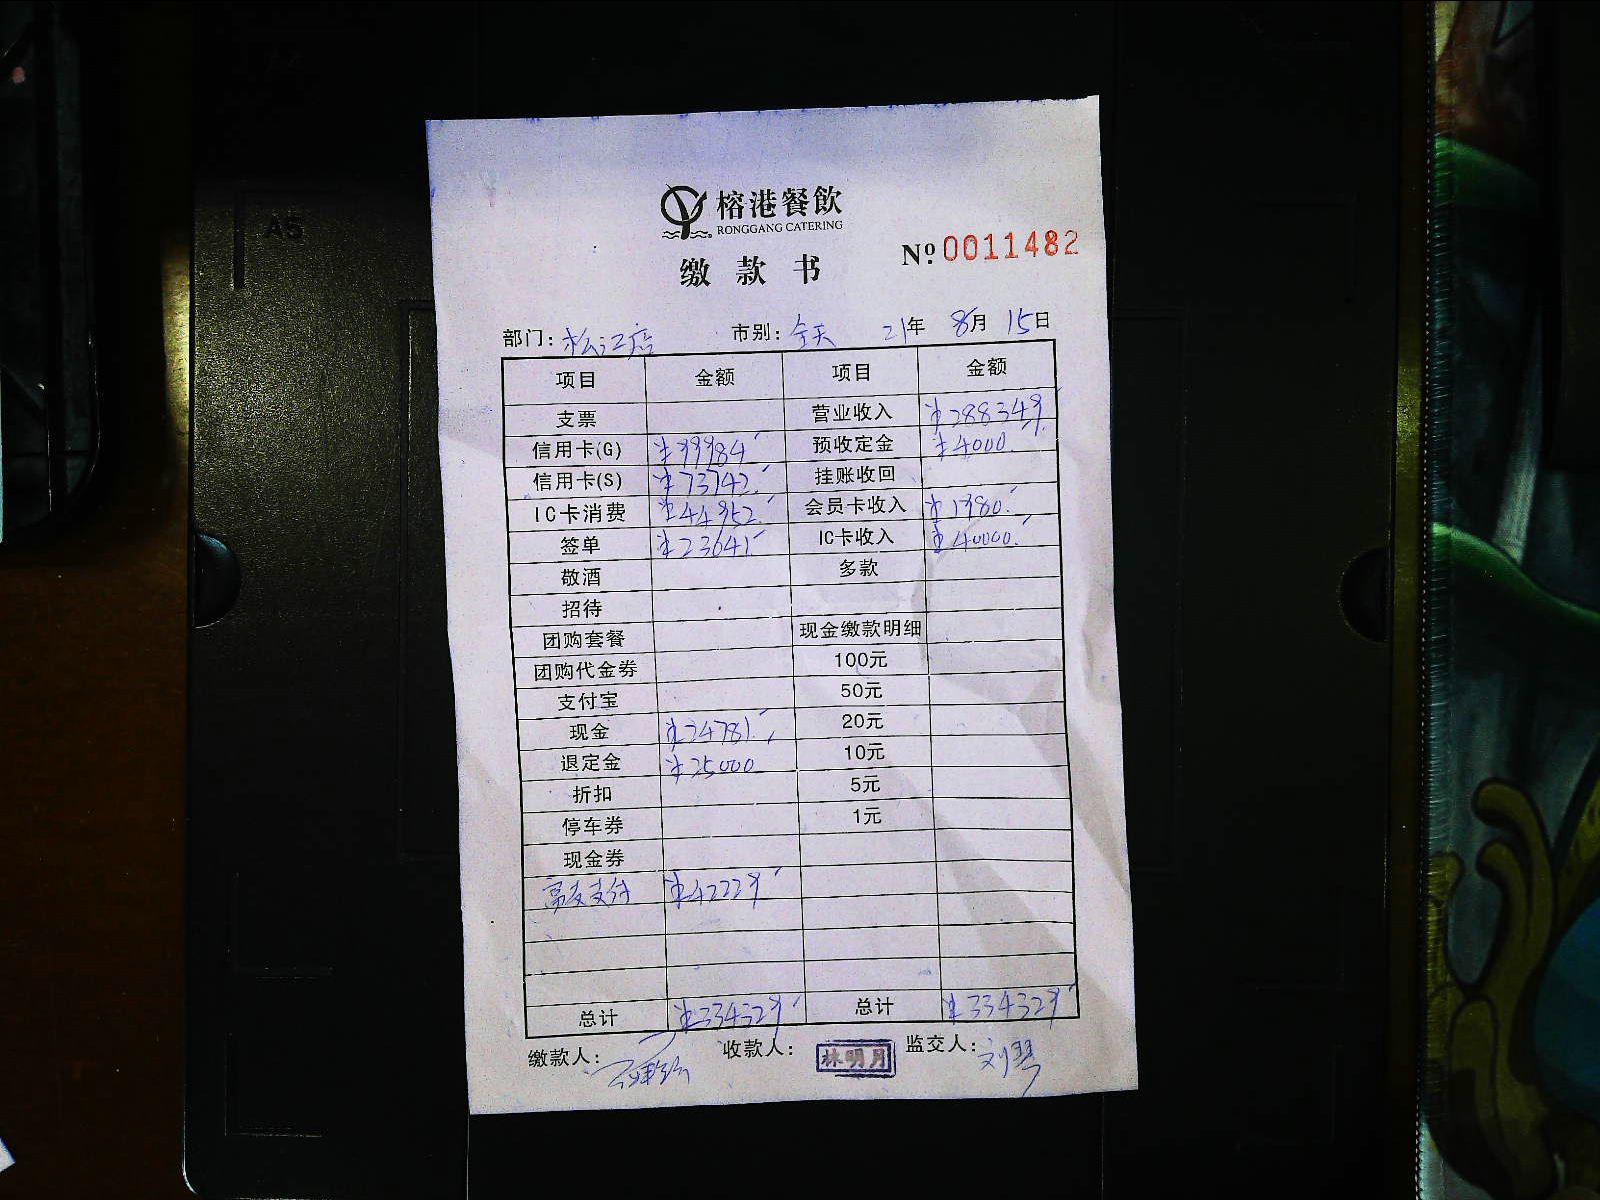 A5
榕港餐飲
RONGGANG CATERING
缴款书
№ 0011482
部门: 松江店 市别: 全天 21年 8月 15日
项目 金额 项目 金额
支票 营业收入 ¥288349
信用卡(G) ¥99984 预收定金 ¥4000
信用卡(S) ¥73742 挂账收回
IC卡消费 ¥44952 会员卡收入 ¥1980
签单 ¥23641 IC卡收入 ¥40000
敬酒 多款
招待
团购套餐 现金缴款明细
团购代金券 100元
支付宝 50元
现金 ¥24781 20元
退定金 ¥25000 10元
折扣 5元
停车券 1元
现金券
支付 ¥42229
总计 ¥334329 总计 ¥334329
缴款人: 收款人: 林明月 监交人: 刘琴